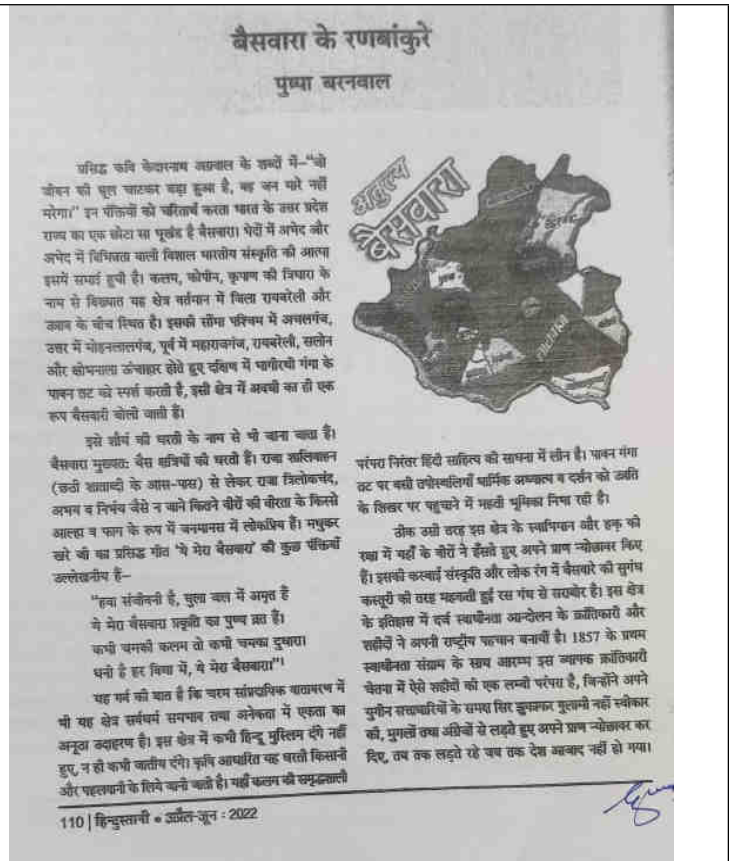 बैसवारा के रणबांकुरे
पुष्पा बरनवाल
प्रसिद्ध कवि केदारनाथ अग्रवाल के शब्दों में–"जो
जीवन की धूल चाटकर बड़ा हुआ है, वह जन मारे नहीं
मरेगा।" इन पंक्तियों को चरितार्थ करता भारत के उत्तर प्रदेश
राज्य का एक छोटा सा भूखंड है बैसवारा। भेदों में अभेद और
अभेद में विभिन्नता वाली विशाल भारतीय संस्कृति की आत्मा
इसमें समाई हुयी है। कलम, कोपीन, कृपाण की त्रिधारा के
नाम से विख्यात यह क्षेत्र वर्तमान में जिला रायबरेली और
उन्नाव के बीच स्थित है। इसकी सीमा पश्चिम में अचलगंज,
उत्तर में मोहनलालगंज, पूर्व में महाराजगंज, रायबरेली, सलोन
और क्षोभनाला ऊंचाहार होते हुए दक्षिण में भागीरथी गंगा के
पावन तट को स्पर्श करती है, इसी क्षेत्र में अवधी का ही एक
रूप बैसवारी बोली जाती हैं।
इसे शौर्य की धरती के नाम से भी जाना जाता हैं।
बैसवारा मुख्यतः बैस क्षत्रियों की धरती हैं। राजा शालिवाहन
(छठी शताब्दी के आस-पास) से लेकर राजा त्रिलोकचंद,
अभय व निर्भय जैसे न जाने कितने वीरों की वीरता के किस्से
आल्हा व फाग के रूप में जनमानस में लोकप्रिय हैं। मधुकर
खरे जी का प्रसिद्ध गीत 'ये मेरा बैसवारा' की कुछ पंक्तियाँ
उल्लेखनीय हैं–
"हवा संजीवनी है, घुला जल में अमृत हैं
ये मेरा बैसवारा प्रकृति का पुण्य व्रत हैं।
कभी चमकी कलम तो कभी चमका दुधारा।
धनी है हर विधा में, ये मेरा बैसवारा।"¹
यह गर्व की बात है कि चरम सांप्रदायिक वातावरण में
भी यह क्षेत्र सर्वधर्म समभाव तथा अनेकता में एकता का
अनूठा उदाहरण है। इस क्षेत्र में कभी हिन्दू मुस्लिम दंगे नहीं
हुए, न ही कभी जातीय दंगे। कृषि आधारित यह धरती किसानी
और पहलवानी के लिये जानी जाती है। यहाँ कलम की समृद्धशाली
अतुल्य
बैसवारा
परंपरा निरंतर हिंदी साहित्य की साधना में लीन है। पावन गंगा
तट पर बसी तपोस्थलियाँ धार्मिक अध्यात्म व दर्शन को उन्नति
के शिखर पर पहुचाने में महती भूमिका निभा रही है।
ठीक उसी तरह इस क्षेत्र के स्वाभिमान और हक़ की
रक्षा में यहाँ के वीरों ने हँसते हुए अपने प्राण न्योछावर किए
हैं। इसकी कस्बाई संस्कृति और लोक रंग में बैसवारे की सुगंध
कस्तूरी की तरह महकती हुई रस गंध से सराबोर है। इस क्षेत्र
के इतिहास में दर्ज स्वाधीनता आन्दोलन के क्रांतिकारी और
शहीदों ने अपनी राष्ट्रीय पहचान बनायीं है। 1857 के प्रथम
स्वाधीनता संग्राम के साथ आरम्भ इस व्यापक क्रांतिकारी
चेतना में ऐसे शहीदों की एक लम्बी परंपरा है, जिन्होंने अपने
युगीन सत्ताधारियों के समक्ष सिर झुकाकर गुलामी नहीं स्वीकार
की, मुगलों तथा अंग्रेजों से लड़ते हुए अपने प्राण न्योछावर कर
दिए, तब तक लड़ते रहे जब तक देश आजाद नहीं हो गया।
110 | हिन्दुस्तानी ● अप्रैल-जून : 2022